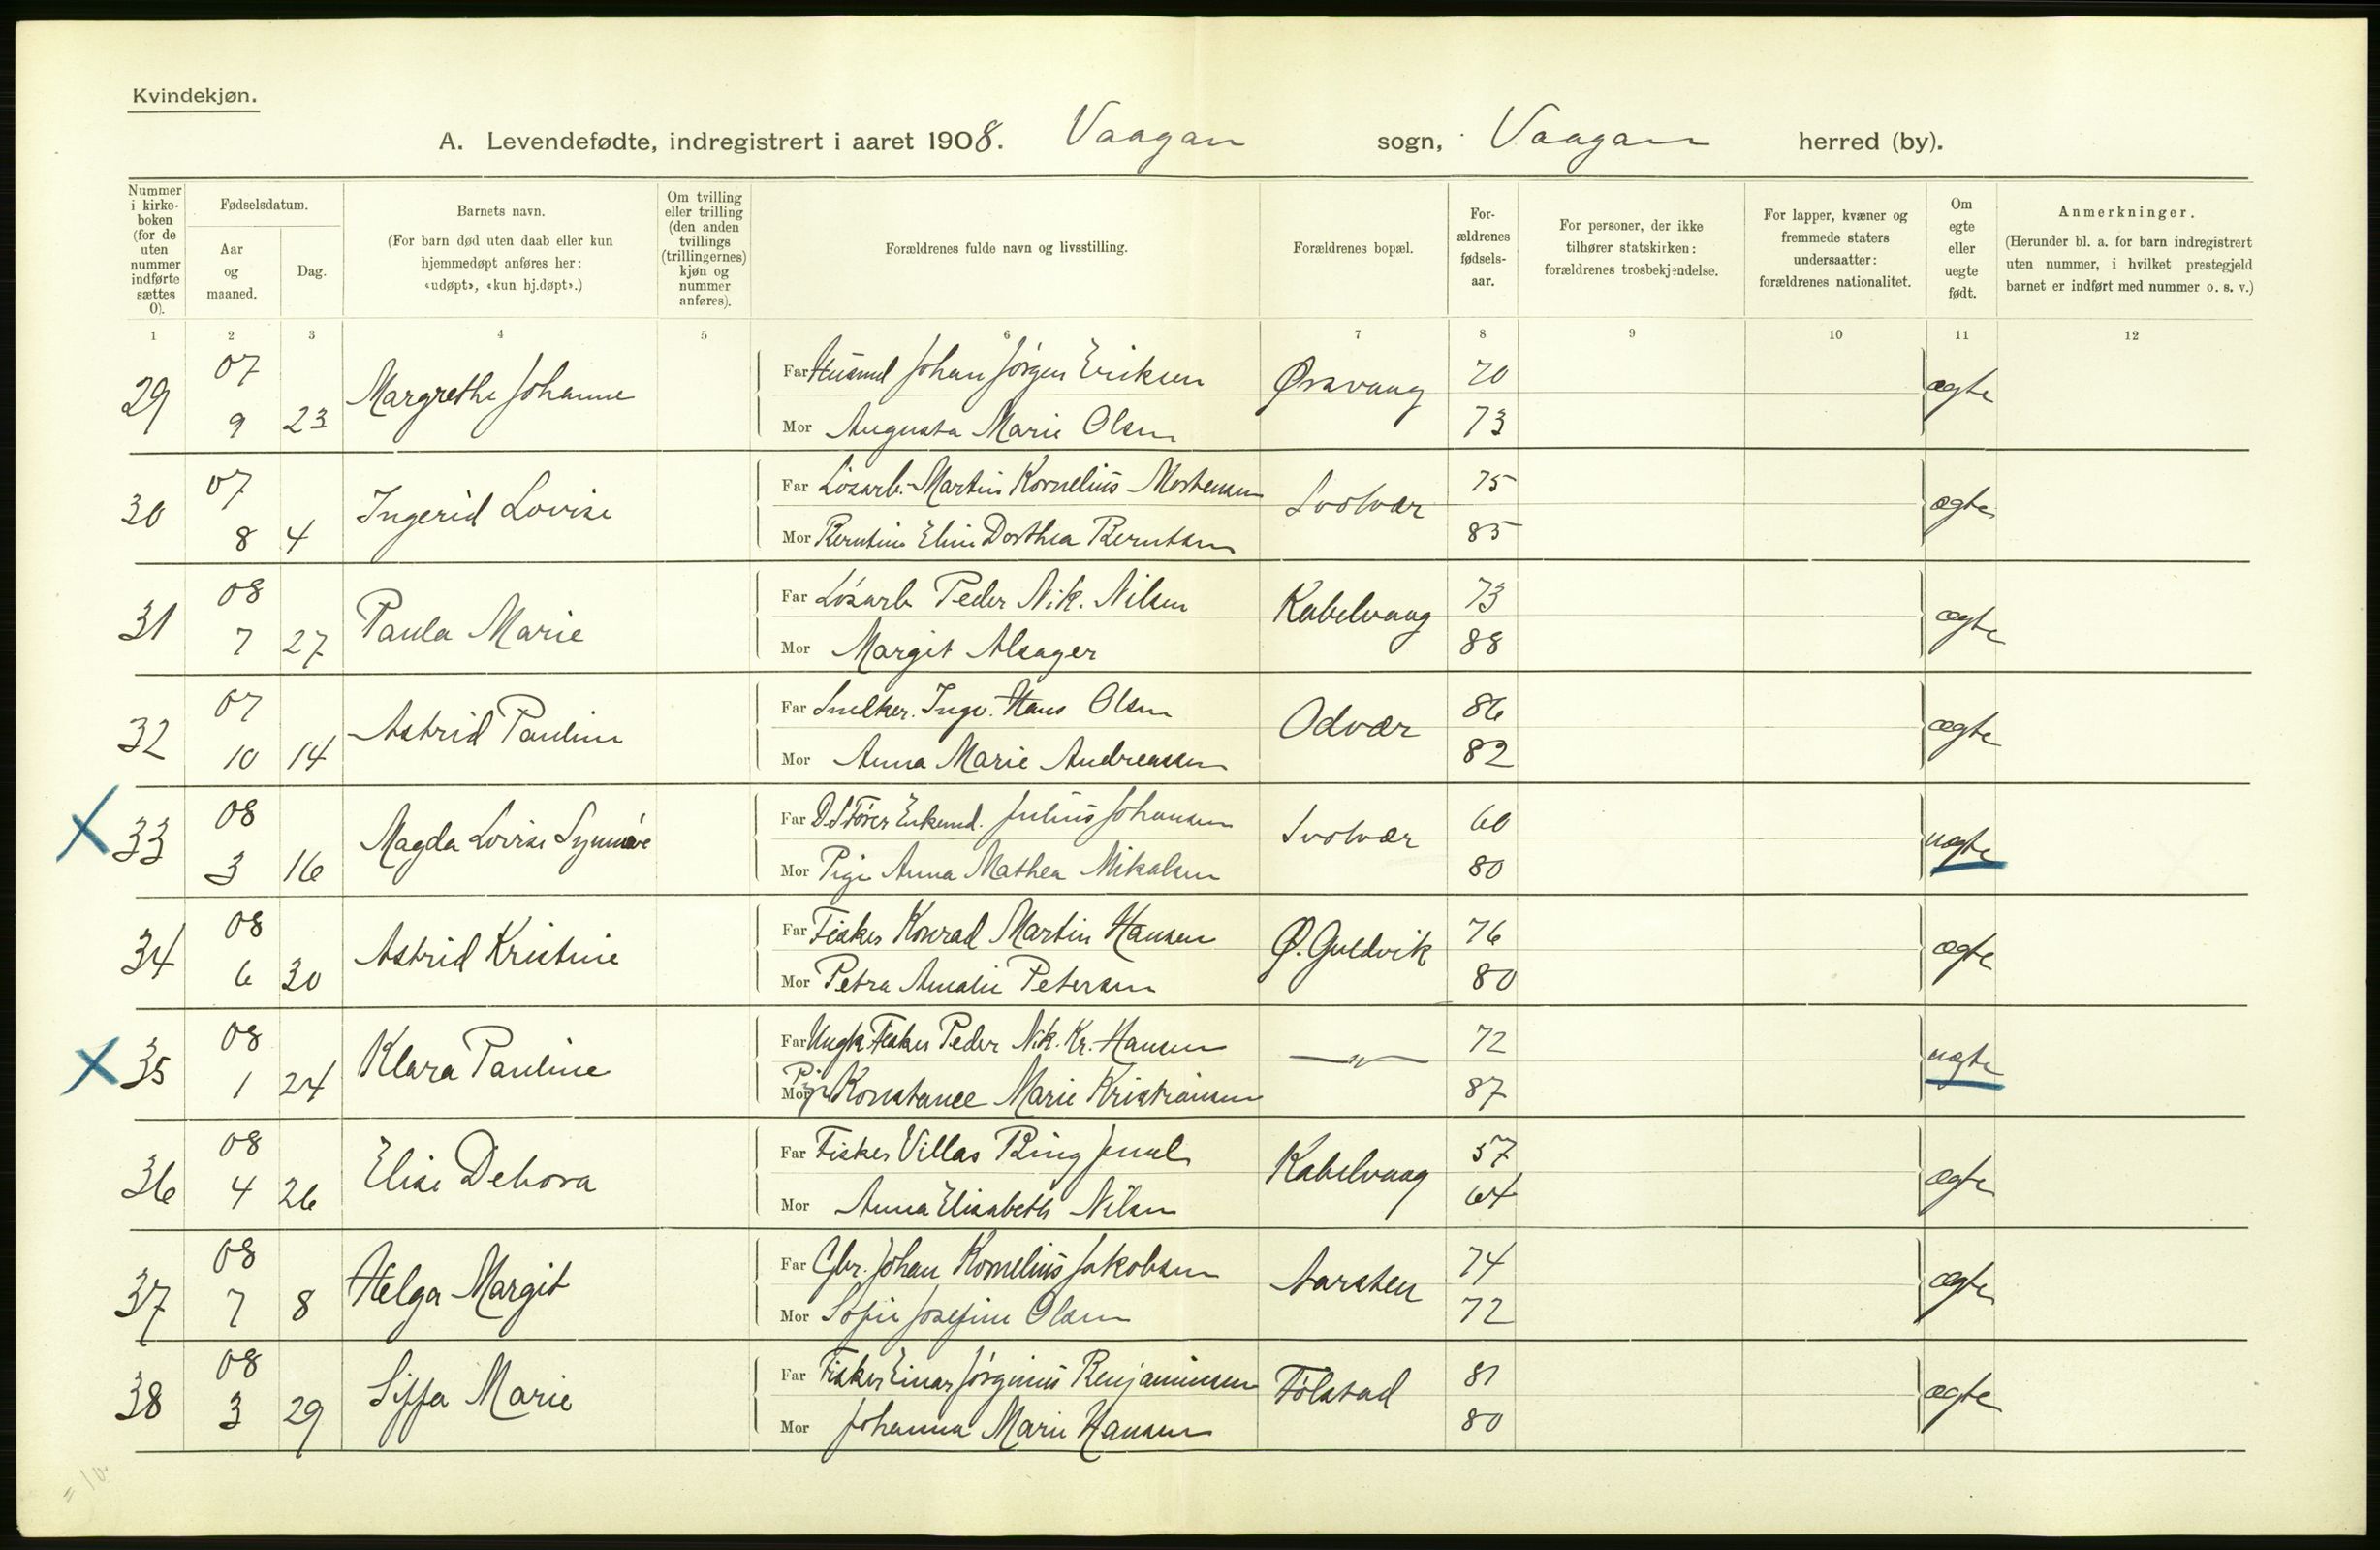 Kvindekjøn.
A. Levendefødte, indregistrert i aaret 1908. Vaagan sogn, Vaagan herred (by).
Nummer i kirke-boken (for de uten nummer indførte sættes 0).
Fødselsdatum.
Aar og maaned.
Dag.
Barnets navn.
(For barn død uten daab eller kun hjemmedøpt anføres her: «udøpt», «kun hj.døpt».)
Om tvilling eller trilling (den anden tvillings (trillingernes) kjøn og nummer anføres).
Forældrenes fulde navn og livsstilling.
Forældrenes bopæl.
For-ældrenes fødsels-aar.
For personer, der ikke tilhører statskirken: forældrenes trosbekjendelse.
For lapper, kvæner og fremmede staters undersaatter: forældrenes nationalitet.
Om egte eller uegte født.
Anmerkninger.
(Herunder bl. a. for barn indregistrert uten nummer, i hvilket prestegjeld barnet er indført med nummer o. s. v.)
1 2 3 4 5 6 7 8 9 10 11 12
29 07 9 23 Margrethe Johanne Far Husmd Johan Jörgen Eriksen Ørsvaag 70 ægte
Mor Augusta Marie Olsen 73
30 07 8 4 Ingerid Lovise Far Lösarb. Martin Kornelius Mortensen Svolvær 75 ægte
Mor Berntine Eline Dorthea Berntsen 85
31 08 7 27 Paula Marie Far Lösarb Peder Nik. Nilsen Kabelvaag 73 ægte
Mor Margit Alsager 88
32 07 10 14 Astrid Pauline Far Snedker. Ingv. Hans Olsen Odvær 86 ægte
Mor Anna Marie Andreassen 82
X 33 08 3 16 Magda Lovise Synnöve Far D.S Förer Enkemd. Julius Johansen Svolvær 60 uægte
Mor Pige Anna Mathea Mikalsen 80
34 08 6 30 Astrid Kristine Far Fisker Konrad Martin Hansen Ø. Guldvik 76 ægte
Mor Petra Amalie Petersen 80
X 35 08 1 24 Klara Pauline Far Ungk Fisker Peder Nik. Kr. Hansen —"— 72 uægte
Mor Pige Konstance Marie Kristiansen 87
36 08 4 26 Elise Debora Far Fisker Villas Ring Juul Kabelvaag 57 ægte
Mor Anna Elisabeth Nilsen 64
37 08 7 8 Helga Margit Far Gbr. Johan Kornelius Jakobsen Aarsten 74 ægte
Mor Sofie Josefine Olsen 72
38 08 3 29 Siffa Marie Far Fisker Einar Jörginius Benjaminsen Fölstad 81 ægte
Mor Johanna Marie Hansen 80
= 10